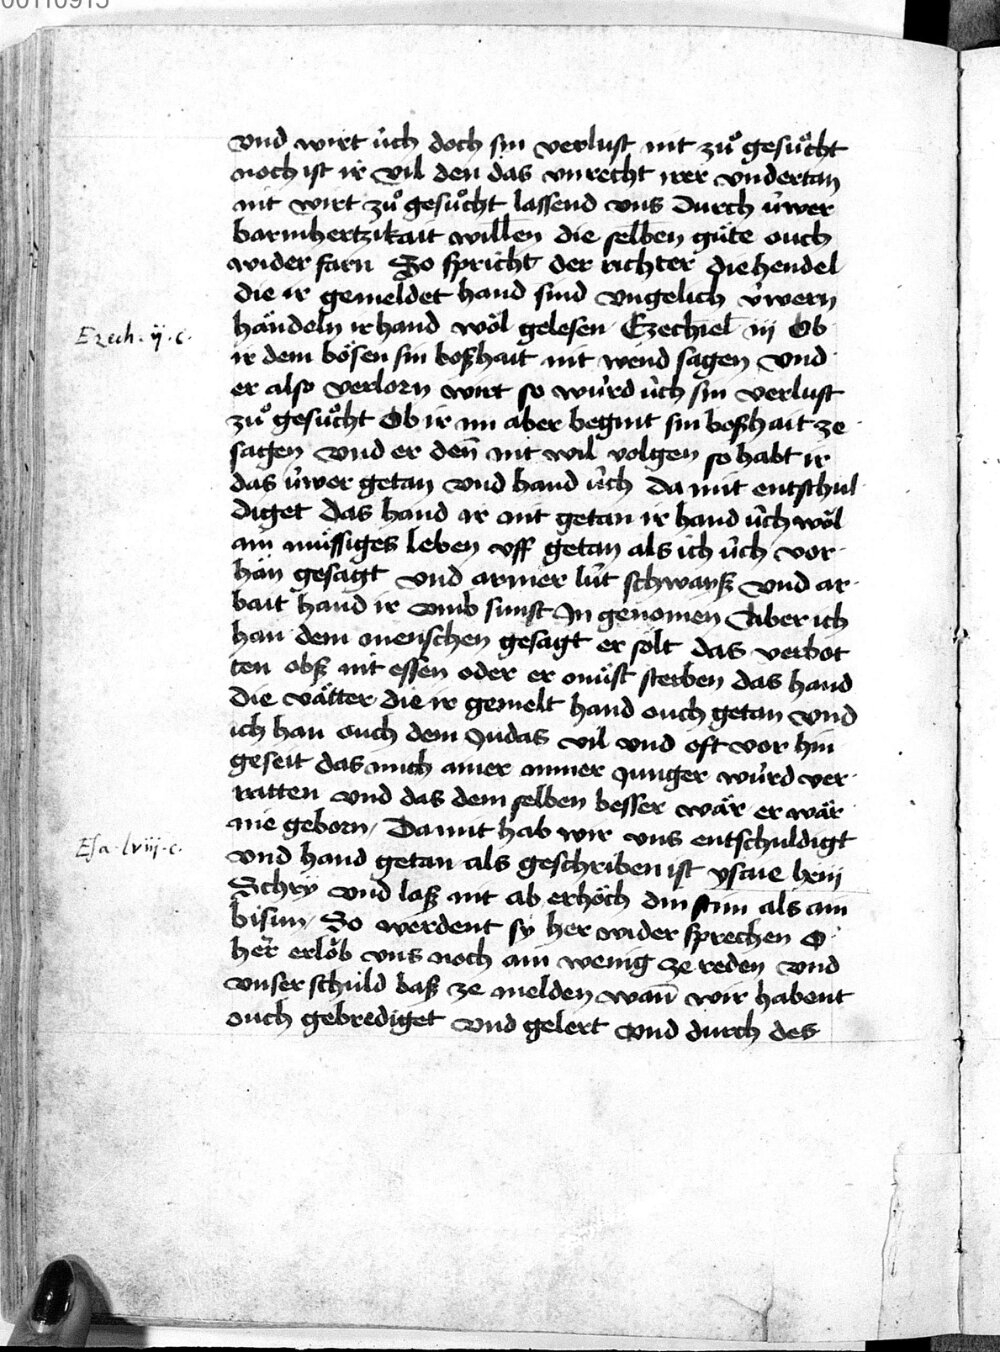 00110915
vnd wirt ůch doch sin verlust nit zů gesůcht
noch ist ir vil den das vnrecht irer vndertan
nit wirt zů gesůcht lassend vns durch ůwer
barmhertzikait willen die selben gůte ouch
wider farn So spricht der richter die hendel
die ir gemeldet hand sind vngelich ůwern
händeln ir hand wol gelesen Ezechiel iij Ob
Ezech. ij. c.
ir dem bösen sin boßhait nit wend sagen vnd
er also verlorn wirt so wůrd ůch sin verlust
zů gesůcht Ob ir im aber begint sin boßhait ze
sagen vnd er deñ nit wil volgen so habt ir
das ůwer getan vnd hand ůch da mit entschul
diget Das hand ir nit getan ir hand ůch wol
ain müssiges leben vff getan als ich ůch vor
hän gesagt vnd armer lůt schwaiß vnd ar
bait hand ir vmb sunst In genomen Aber ich
han dem menschen gesagt er solt das verbot
ten obß nit essen oder er můst sterben das hand
die vätter die ir gemelt hand ouch getan vnd
ich han ouch dem Judas vil vnd oft vor hin
geseit das mich ainer miner Junger wůrd ver
ratten vnd das dem selben besser wär er wär
nie geborn / Damit hab wir vns entschuldigt
Esa. lviij. c.
vnd hand getan als geschriben ist ysaie lviij
Schry vnd laß nit ab erhöch din stim als ain
bisun / So werdent sy her wider sprechen O
her erlöb vns noch ain wenig ze reden vnd
vnser schuld baß ze melden wañ wir habent
ouch gebrediget vnd gelert vnd durch des